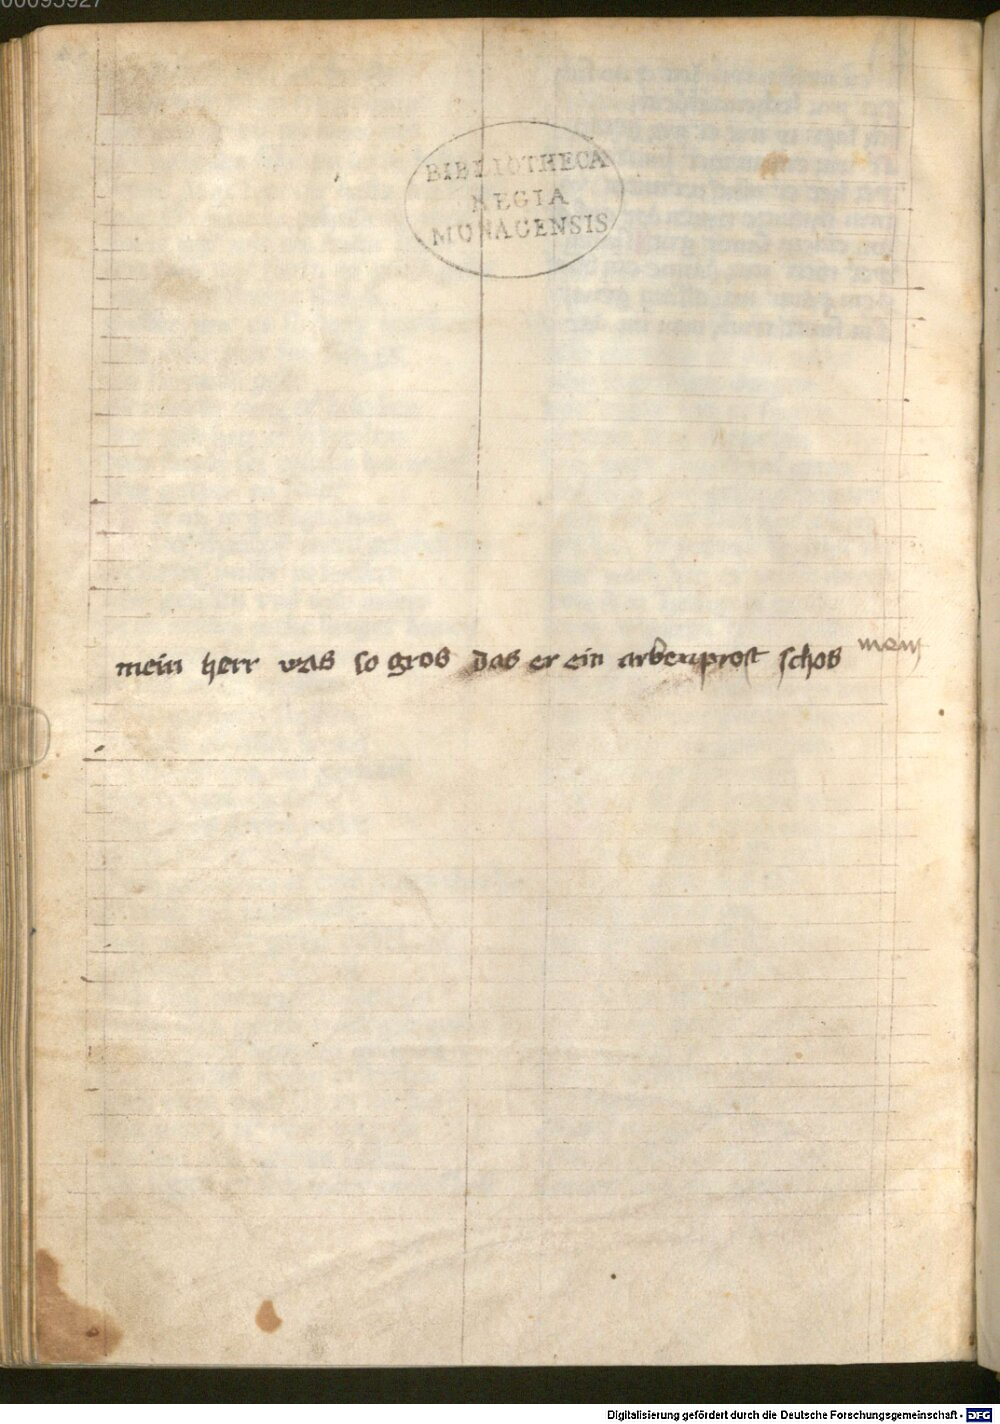 00095927
BIBLIOTHECA
REGIA
MONACENSIS
mein herr was so gros das er ein arbenprost schos mein
Digitalisierung gefördert durch die Deutsche Forschungsgemeinschaft - DFG